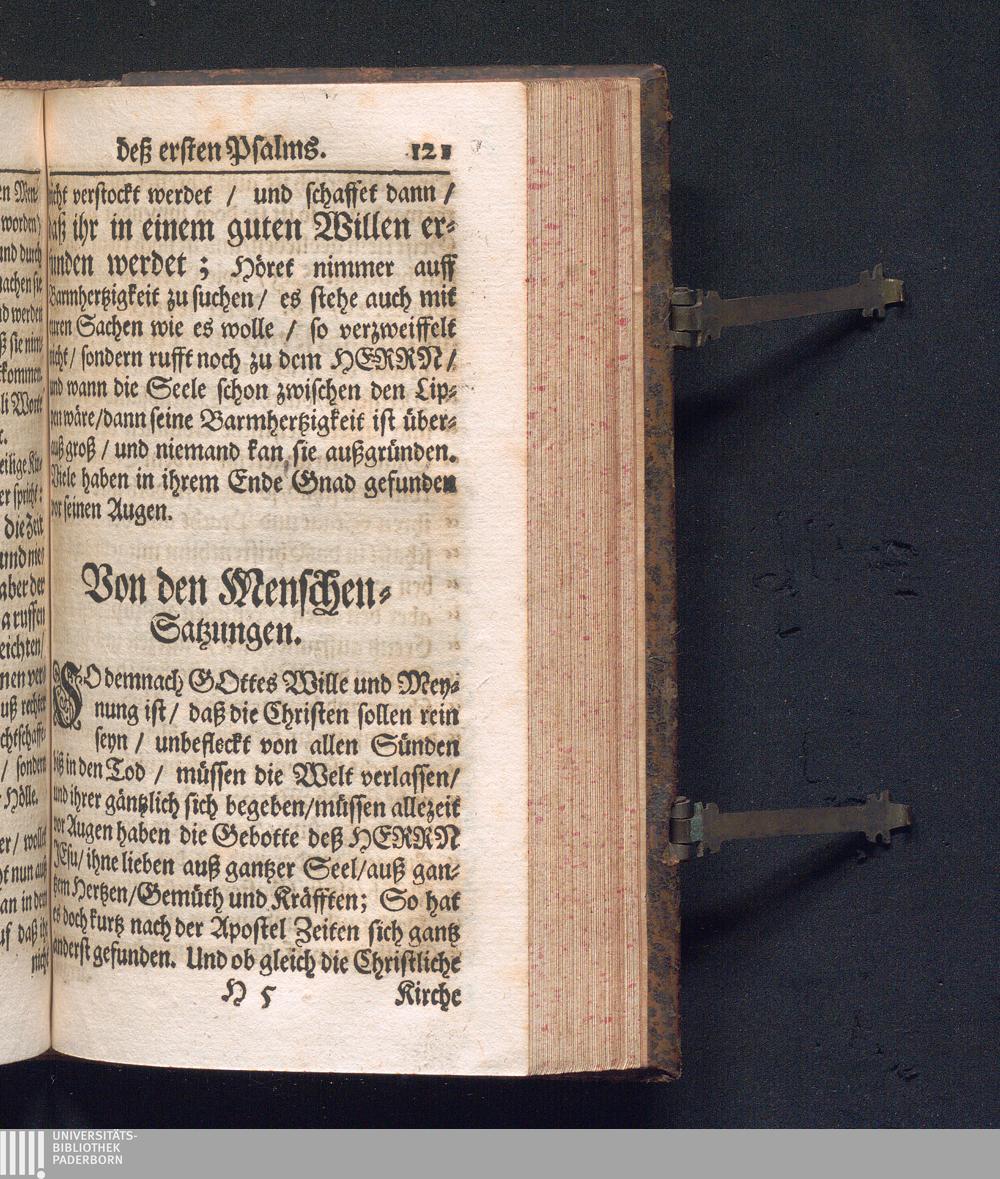 deß ersten Psalms. 121
nicht verstockt werdet / und schaffet dann /
daß ihr in einem guten Willen er-
funden werdet ; Höret nimmer auff
Barmhertzigkeit zu suchen / es stehe auch mit
euren Sachen wie es wolle / so verzweiffelt
nicht / sondern rufft noch zu dem HERRN /
und wann die Seele schon zwischen den Lip-
pen wäre / dann seine Barmhertzigkeit ist über-
auß groß / und niemand kan sie außgründen.
Viele haben in ihrem Ende Gnad gefunden
vor seinen Augen.
Von den Menschen-
Satzungen.
SO demnach GOttes Wille und Mey-
nung ist / daß die Christen sollen rein
seyn / unbefleckt von allen Sünden
biß in den Tod / müssen die Welt verlassen /
und ihrer gäntzlich sich begeben / müssen allezeit
vor Augen haben die Gebotte deß HERRN
JEsu / ihne lieben auß gantzer Seel / auß gan-
tzem Hertzen / Gemüth und Kräfften; So hat
es doch kurtz nach der Apostel Zeiten sich gantz
anderst gefunden. Und ob gleich die Christliche
H 5 Kirche
UNIVERSITÄTS-
BIBLIOTHEK
PADERBORN